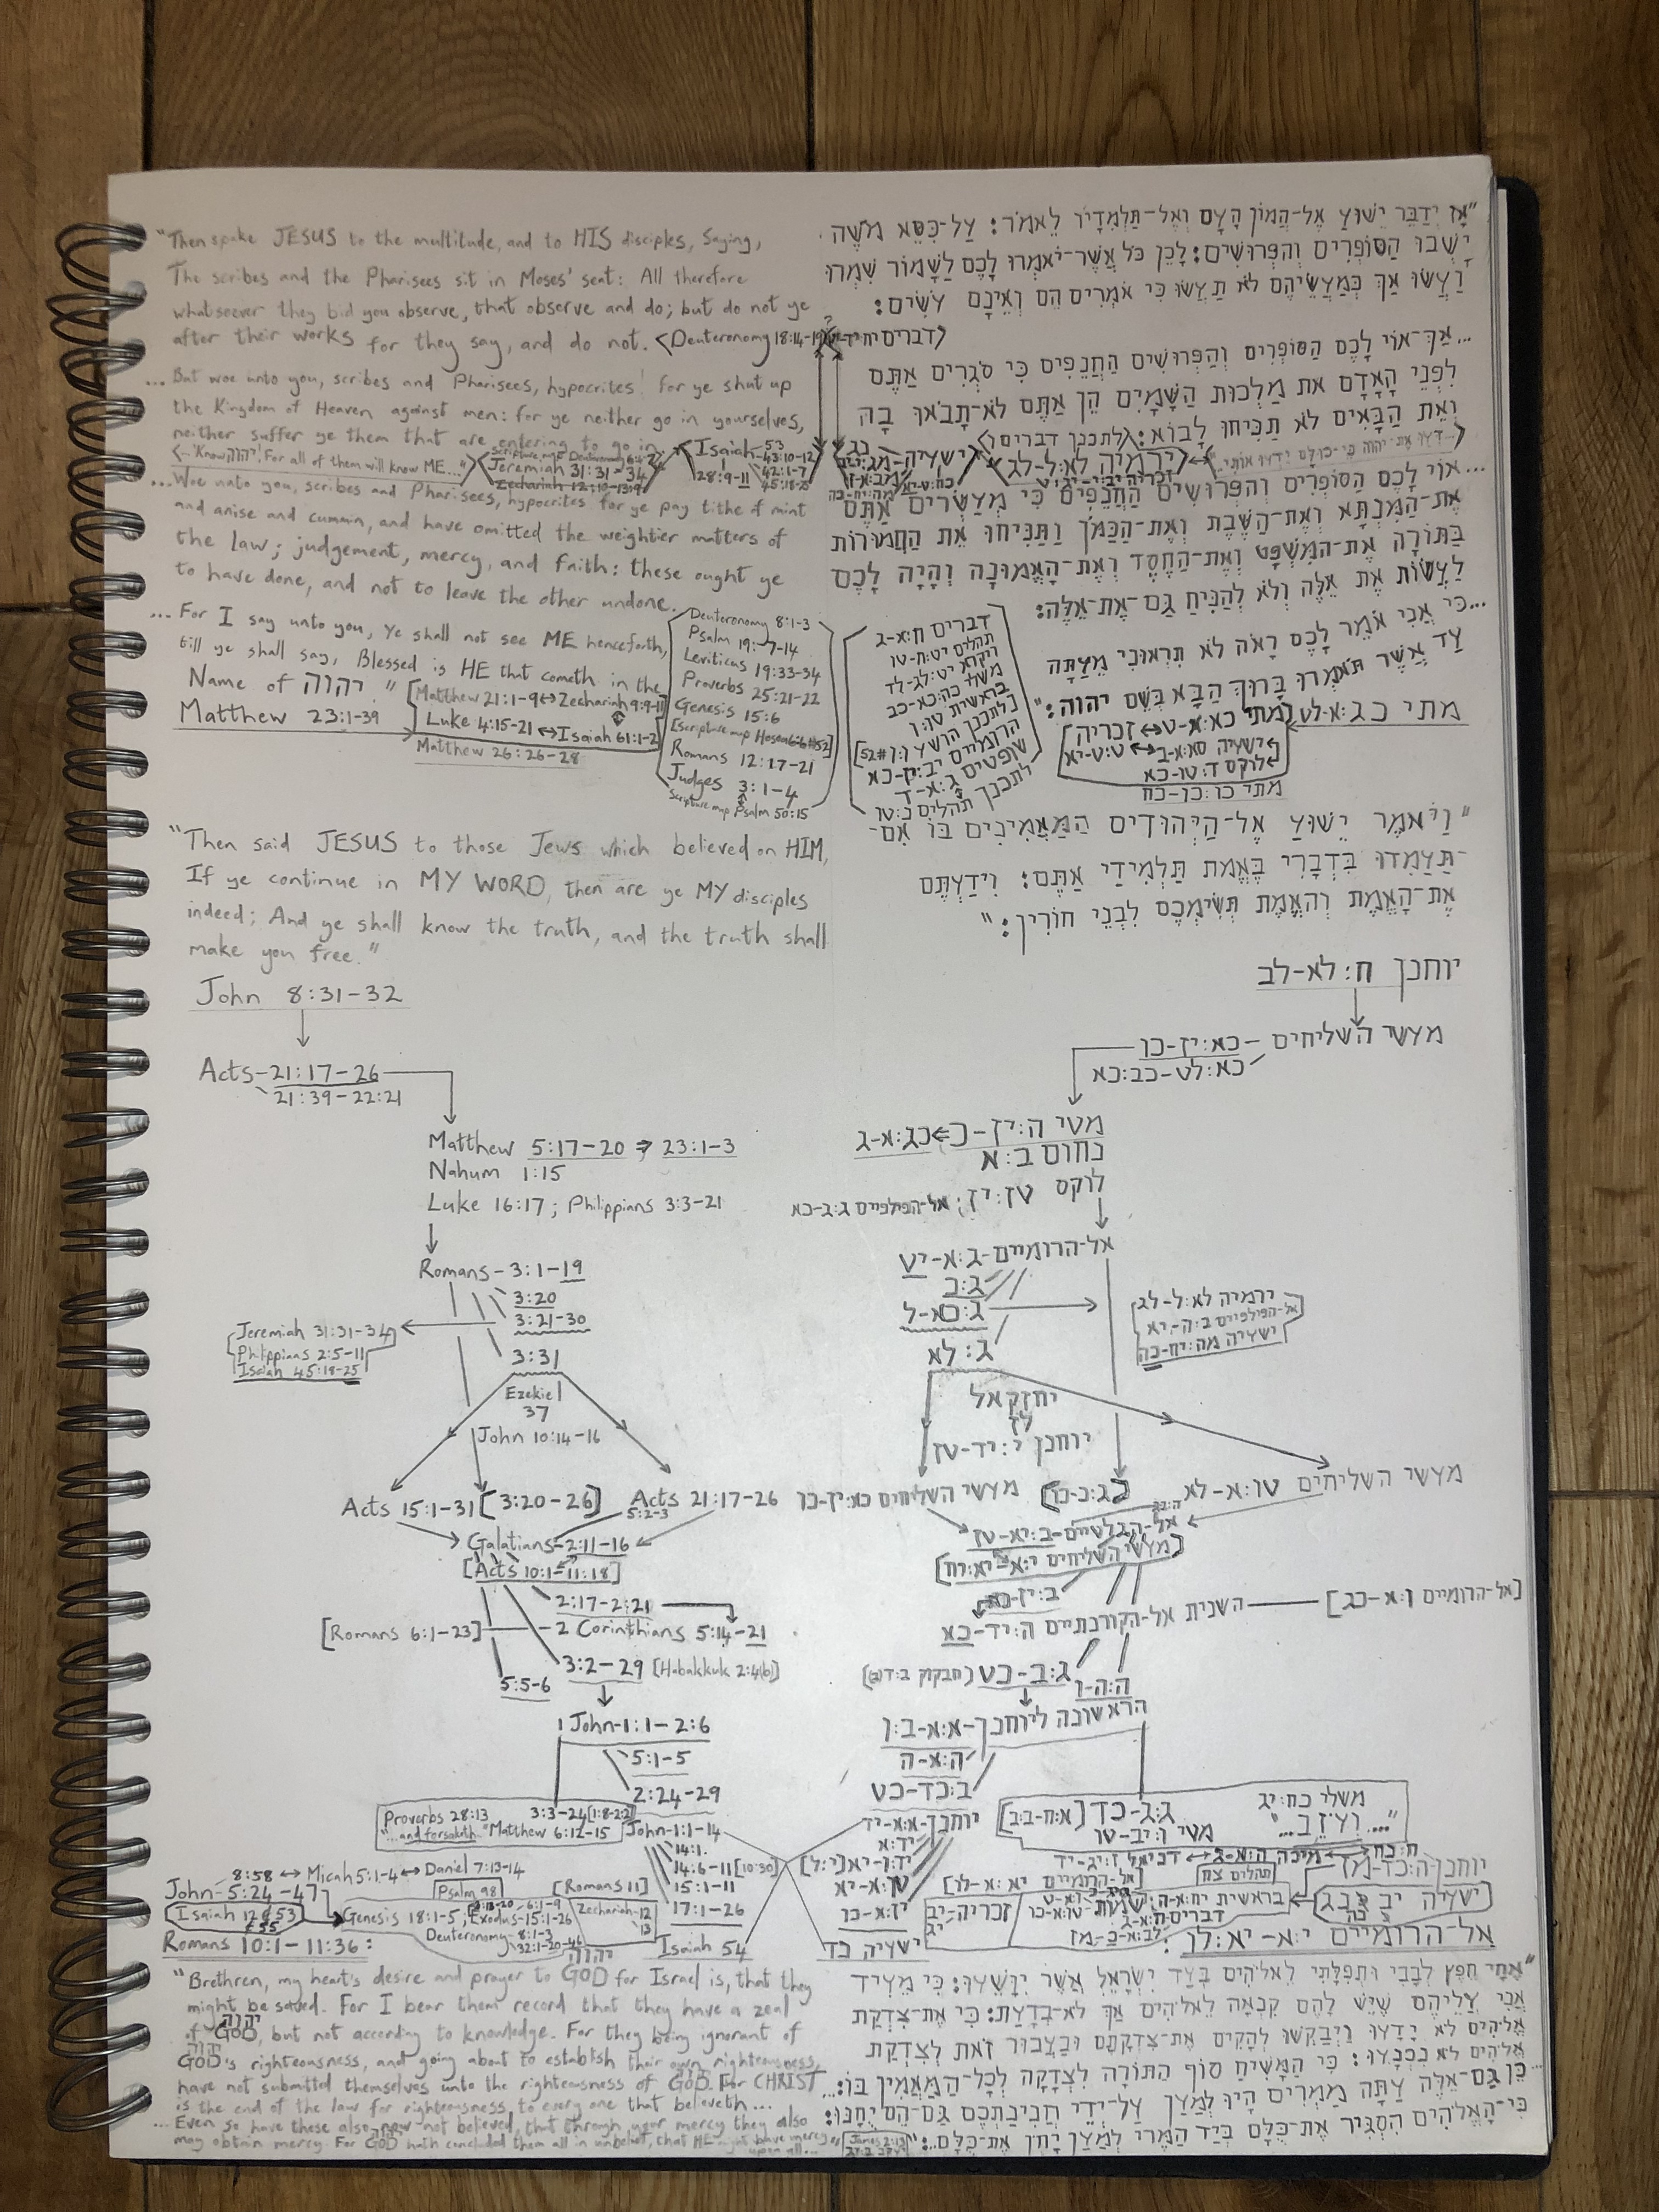 "Then spake JESUS to the multitude, and to HIS disciples, Saying,
The scribes and the Pharisees sit in Moses' seat: All therefore
whatsoever they bid you observe, that observe and do; but do not ye
after their works for they say, and do not. <Deuteronomy 18:14-19
...But woe unto you, scribes and Pharisees, hypocrites! for ye shut up
the Kingdom of Heaven against men: for ye neither go in yourselves,
neither suffer ye them that are entering to go in.
<..."Know יהוה! For all of them will know ME..."> Jeremiah 31:31-34
Zechariah 12:10-13:9
Isaiah-53
43:10-12
42:1-7
45:18-25
28:9-11
...Woe unto you, scribes and Pharisees, hypocrites for ye pay tithe of mint
and anise and cummin, and have omitted the weightier matters of
the law; judgement, mercy, and faith: these ought ye
to have done, and not to leave the other undone.
...For I say unto you, Ye shall not see ME henceforth,
till ye shall say, Blessed is HE that cometh in the
Name of יהוה."
Matthew 23:1-39
[Matthew 21:1-9↔Zechariah 9:9-11
Luke 4:15-21↔Isaiah 61:1-2
Matthew 26:26-28
Deuteronomy 8:1-3
Psalm 19:7-14
Leviticus 19:33-34
Proverbs 25:21-22
Genesis 15:6
[Scripture map Hosea 6:6 #52]
Romans 12:17-21
Judges 3:1-4
Scripture map Psalm 50:15
"אָז יְדַבֵּר יֵשׁוּעַ אֶל-הֲמוֹן הָעָם וְאֶל-תַּלְמִדָיו לֵאמֹר: עַל-כִּסֵּא מֹשֶׁה
יָשְׁבוּ הַסּוֹפְרִים וְהַפְּרוּשִׁים: לָכֵן כֹּל אֲשֶׁר-יֹאמְרוּ לָכֶם לִשְׁמוֹר שִׁמְרוּ
וַעֲשׂוּ אַךְ כְּמַעֲשֵׂיהֶם לֹא תַעֲשׂוּ כִּי אֹמְרִים הֵם וְאֵינָם עֹשִׂים:
...אַךְ-אוֹי לָכֶם הַסּוֹפְרִים וְהַפְּרוּשִׁים הַחֲנֵפִים כִּי סֹגְרִים אַתֶּם
לִפְנֵי הָאָדָם אֶת מַלְכוּת הַשָּׁמָיִם הֵן אַתֶּם לֹא-תָבֹאוּ בָהּ
וְאֶת הַבָּאִים לֹא תַנִּיחוּ לָבוֹא:
...אוֹי לָכֶם הַסּוֹפְרִים וְהַפְּרוּשִׁים הַחֲנֵפִים כִּי מְעַשְּׂרִים אַתֶּם
אֶת-הַמִּנְתָּא וְאֶת-הַשֶּׁבֶת וְאֶת-הַכַּמֹּן וַתַּנִּיחוּ אֶת הַחֲמוּרוֹת
בַּתּוֹרָה אֶת-הַמִּשְׁפָּט וְאֶת-הַחֶסֶד וְאֶת-הָאֱמוּנָה וְהָיָה לָכֶם
לַעֲשׂוֹת אֶת אֵלֶּה וְלֹא לְהַנִּיחַ גַּם-אֶת-אֵלֶּה:
...כִּי אֲנִי אֹמֵר לָכֶם רָאֹה לֹא תִרְאוּנִי מֵעַתָּה
עַד אֲשֶׁר תֹּאמְרוּ בָּרוּךְ הַבָּא בְּשֵׁם יהוה:"
מתי כג:א-לט
דברים ח:א-ג
ויקרא יט:לג-לד
משלי כה:כא-כב
שופטים ג:א-ד
לוקס ד:טו-כא
מתי כו:כו-כח
"Then said JESUS to those Jews which believed on HIM,
If ye continue in MY WORD, then are ye MY disciples
indeed; And ye shall know the truth, and the truth shall
make you free."
John 8:31-32
"וַיֹּאמֶר יֵשׁוּעַ אֶל-הַיְּהוּדִים הַמַּאֲמִינִים בּוֹ אִם-
-תַּעַמְדוּ בִּדְבָרִי בֶּאֱמֶת תַּלְמִידַי אַתֶּם: וִידַעְתֶּם
אֶת-הָאֱמֶת וְהָאֱמֶת תְּשִׂימְכֶם לִבְנֵי חוֹרִין:"
יוחנן ח:לא-לב
Acts-21:17-26
21:39-22:21
מעשי השליחים -כא:יז-כו
כא:לט-כב:כא
Matthew 5:17-20 → 23:1-3
Nahum 1:15
Luke 16:17; Philippians 3:3-21
נחום ב:א
לוקס טז:יז;
Romans-3:1-19
3:20
3:21-30
3:31
Jeremiah 31:31-34
Philippians 2:5-11
Isaiah 45:18-25
אל-הרומיים-ג:א-יט
ג:כ
ג:כא-ל
ג:לא
ירמיה לא:ל-לג
אל-הפילפיים ב:ה-יא
ישעיה מה:יח-כה
Ezekiel
37
John 10:14-16
יחזקאל
לז
יוחנן י:יד-טז
Acts 15:1-31 [3:20-26] Acts 21:17-26
5:2-3
מעשי השליחים כא:יז-כו
[ג:כ-כו]
מעשי השליחים טו:א-לא
Galatians-2:11-16
[Acts 10:1-11:18]
2:17-2:21
[Romans 6:1-23] 2 Corinthians 5:14-21
3:2-29 [Habakkuk 2:4(b)]
5:5-6
אל-הגלטיים-ב:יא-טז
[מעשי השליחים י:א-יא:יח]
ב:יז-כא
השנית אל-הקורנתיים ה:יד-כא
[אל-הרומיים ו:א-כג]
ג:ב-כט
ה:ה-ו
1 John-1:1-2:6
5:1-5
2:24-29
הראשונה ליוחנן-א:א-ב:ו
ה:א-ה
ב:כד-כט
Proverbs 28:13
"...and forsaketh..."
3:3-24 [1:8-2:2]
Matthew 6:12-15
John-1:1-14
14:1
14:6-11 [10:30]
15:1-11
17:1-26
Isaiah 54
משלי כח:יג
"...וְעֹזֵב..."
ג:ג-כד [א:ח-ב:ב]
מתי ו:יב-טו
יוחנן-א:א-יד
יד:א
יד:ו-יא [י:ל]
טו:א-יא
יז:א-כו
ישעיה נד
8:58 ↔ Micah 5:1-4 ↔ Daniel 7:13-14
John-5:24-47
Psalm 98
[Romans 11]
Genesis 18:1-5
Exodus-15:1-26
Deuteronomy-8:1-3
Zechariah-12
13
Romans 10:1-11:36:
אל-הרומיים י:א-יא:לו:
"Brethren, my heart's desire and prayer to GOD for Israel is, that they
might be saved. For I bear them record that they have a zeal
of GOD, but not according to knowledge. For they being ignorant of
GOD's righteousness, and going about to establish their own righteousness,
have not submitted themselves unto the righteousness of GOD. For CHRIST
is the end of the law for righteousness to every one that believeth...
...Even so have these also now not believed, that through your mercy they also
may obtain mercy. For GOD hath concluded them all in unbelief, that HE might have mercy
upon all...
James 2:13
"אֶחָי חֵפֶץ לְבָבִי וּתְפִלָּתִי לֵאלֹהִים בְּעַד יִשְׂרָאֵל אֲשֶׁר יִוָּשֵׁעוּ: כִּי מֵעִיד
אֲנִי עֲלֵיהֶם שֶׁיֵּשׁ לָהֶם קִנְאָה לֵאלֹהִים אַךְ לֹא-בְדָעַת: כִּי אֶת-צִדְקַת
אֱלֹהִים לֹא יָדָעוּ וַיְבַקְשׁוּ לְהָקִים אֶת-צִדְקָתָם וּבַעֲבוּר זֹאת לְצִדְקַת
אֱלֹהִים לֹא נִכְנָעוּ: כִּי הַמָּשִׁיחַ סוֹף הַתּוֹרָה לִצְדָקָה לְכָל-הַמַּאֲמִין בּוֹ:...
...כֵּן גַּם-אֵלֶּה עַתָּה מַמְרִים הָיוּ לְמַעַן עַל-יְדֵי חֲנִינַתְכֶם גַּם-הֵם יֻחָנּוּ:
כִּי-הָאֱלֹהִים הִסְגִּיר אֶת-כֻּלָּם בְּיַד הַמֶּרִי לְמַעַן יָחֹן אֶת-כֻּלָּם...:"